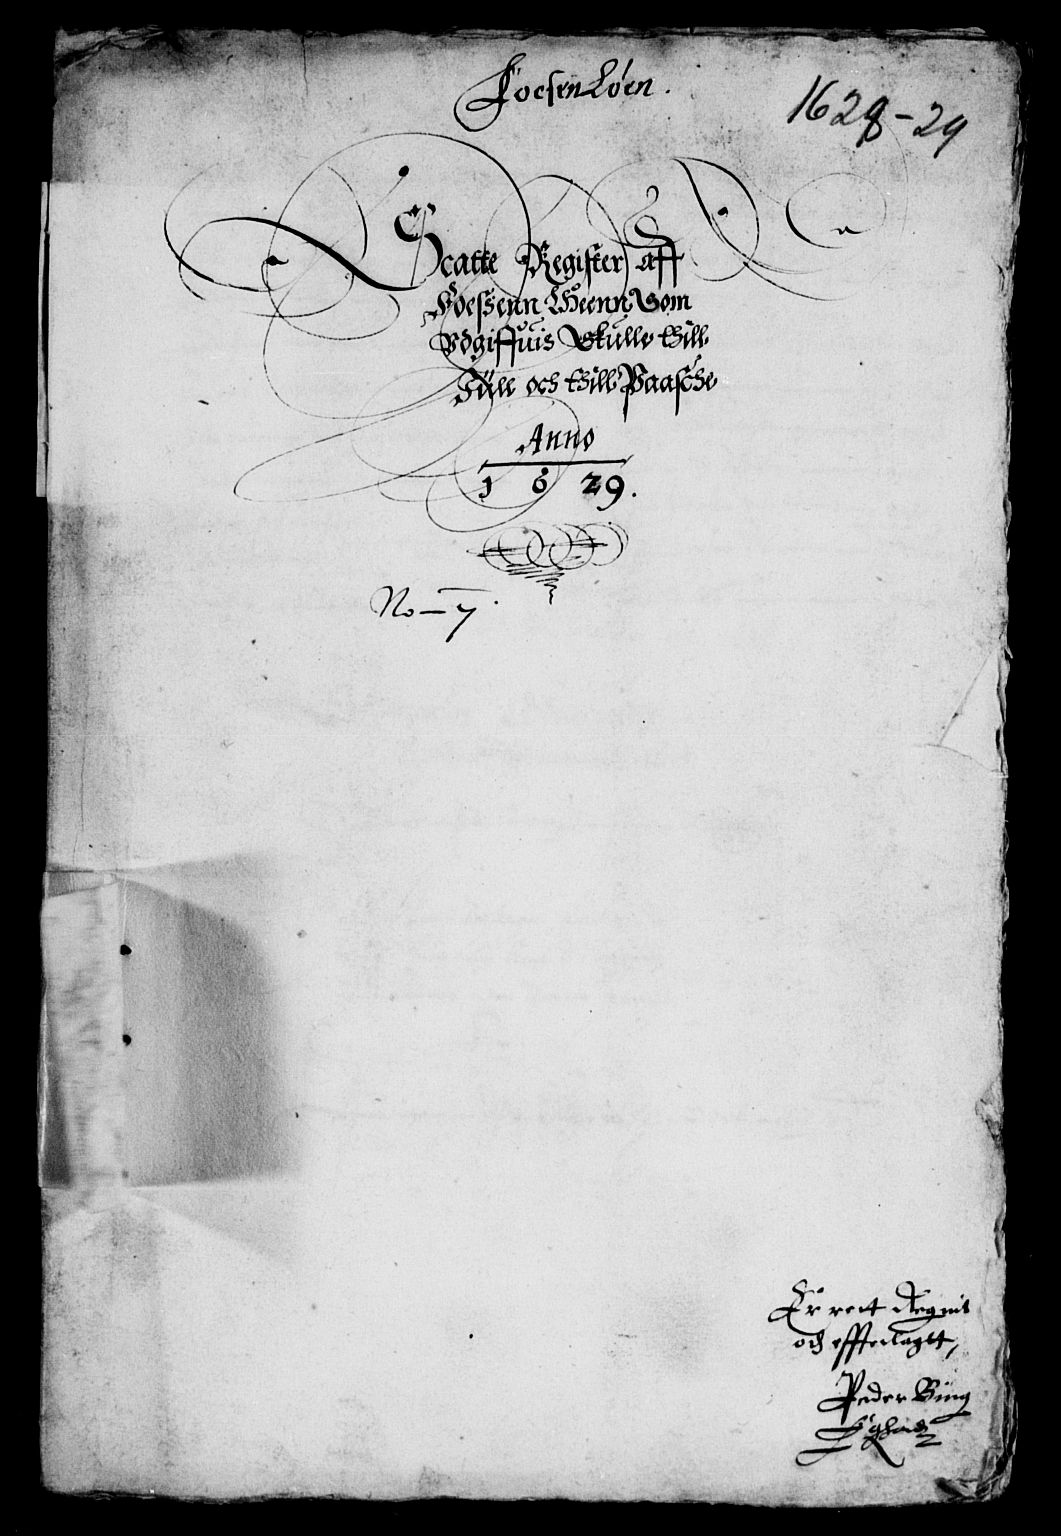 Foesen Løen.
1628-29
Scatte Register aff
Foeszenn Lheenn Som
Vdgiffuis Skulle thill
Jull och thill Paasche
Anno
1629.
No - 7.
Er rett Regnit
och effterlagtt,
Peder Bing